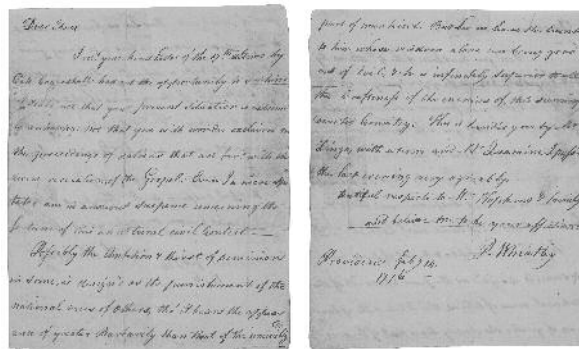 Dear Obour
I recd. your kind letter of the 17th by
Coll. had not the opportunity to
I doubt not that your present situation is extremely
unhappy; nor that you with wonder exclaim on
the proceedings of nations that are with the
divine revelation of the Gospel. Even I a mere spec
tator am in anxious suspense concerning the
fortune of this unnatural civil Contest.
Possibly the Ambition & thirst of Dominion
in some, is as the punishment of the
national of others, tho' it bears the appear
ance of greater Barbarity than that of the uncivilized
part of mankind. But in the hands
to him whose wisdom alone can bring good
out of Evil, & he is infinitely superior to all
the Craftiness of the enemies of this seemingly
devoted Country. This is handed you by Mr.
with whom and I
the last evening very agreeably.
dutiful respects to Mr. Hopkins & family
and believe me to be your affectionate
P. Wheatley
Providence Feby 14
1776